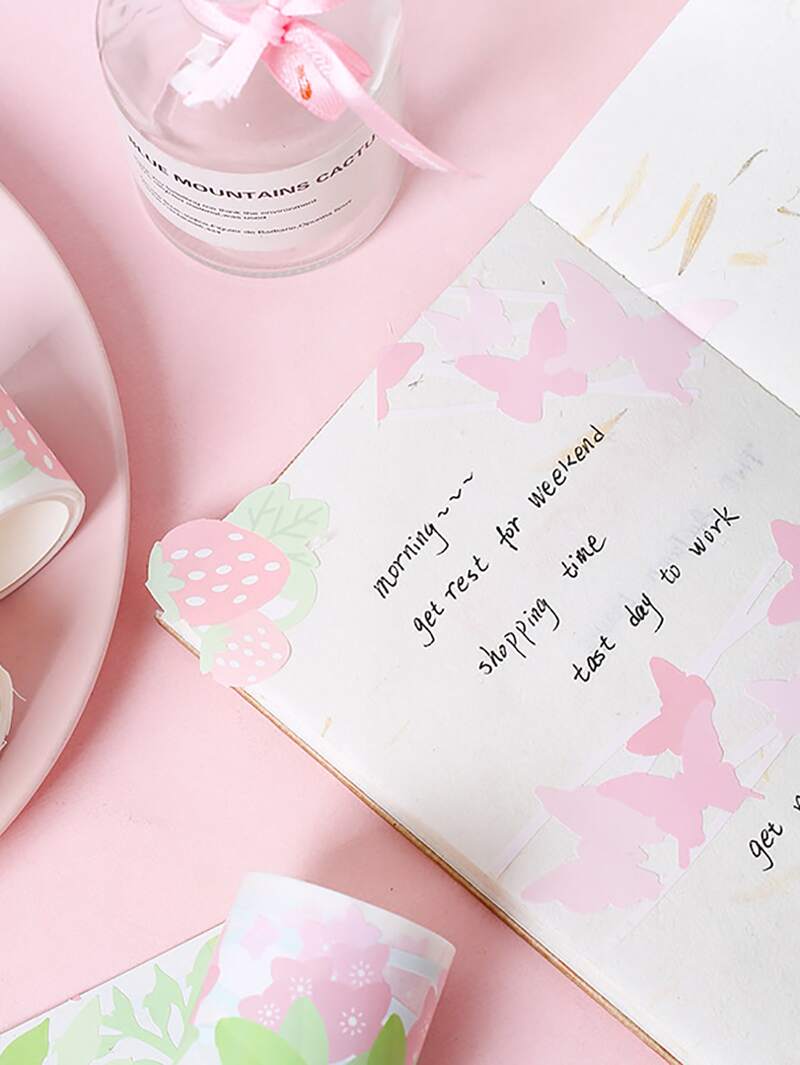 BLUE MOUNTAINS CACTU
morning~~~
get rest for weekend
shopping time
tast day to work
get